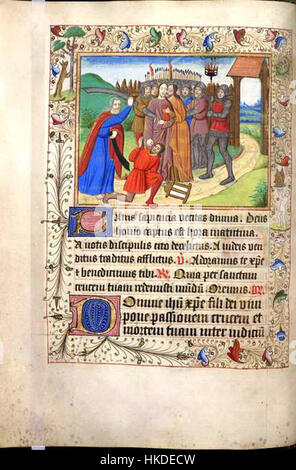 Patris sapiencia veritas diuina. Deus
homo captus est hora matutina.
A notis discipulis cito derelictus. A iudeis ven
ditus traditus afflictus. V Adoramꝰ te xp̄e
et benedicimus tibi. R Quia per sanctam
crucem tuam redemisti mūdum. Oremus.
Domine ihū xp̄e fili dei viui
pone passionem crucem et
mortem tuam inter iudiciū
alamy stock photo
HKDECW
www.alamy.com